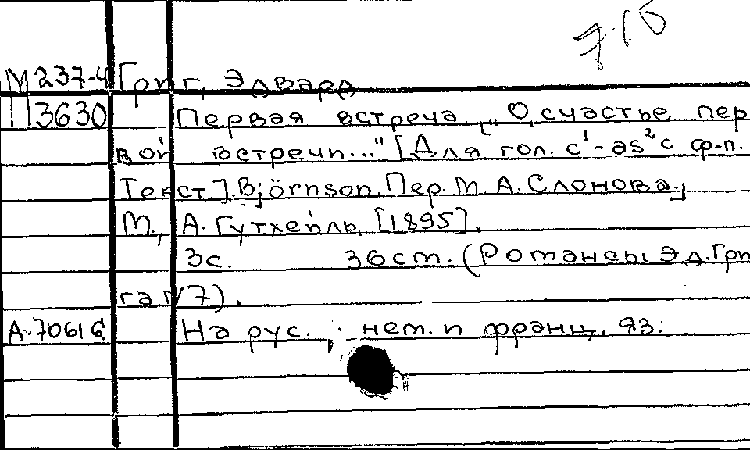 7.10
М 237-4 Григ, Эдвард
П 3630 Первая встреча. „О, счастье пер
вой встречи..." [Для гол. c¹-as² с ф-п.
Текст] Björnson. Пер. М. А. Слонова.
М., А. Гутхейль, [1895].
3с. 36 см. (Романсы Эд. Гри
га №7).
А-7061 б На рус., нем. и франц. яз.